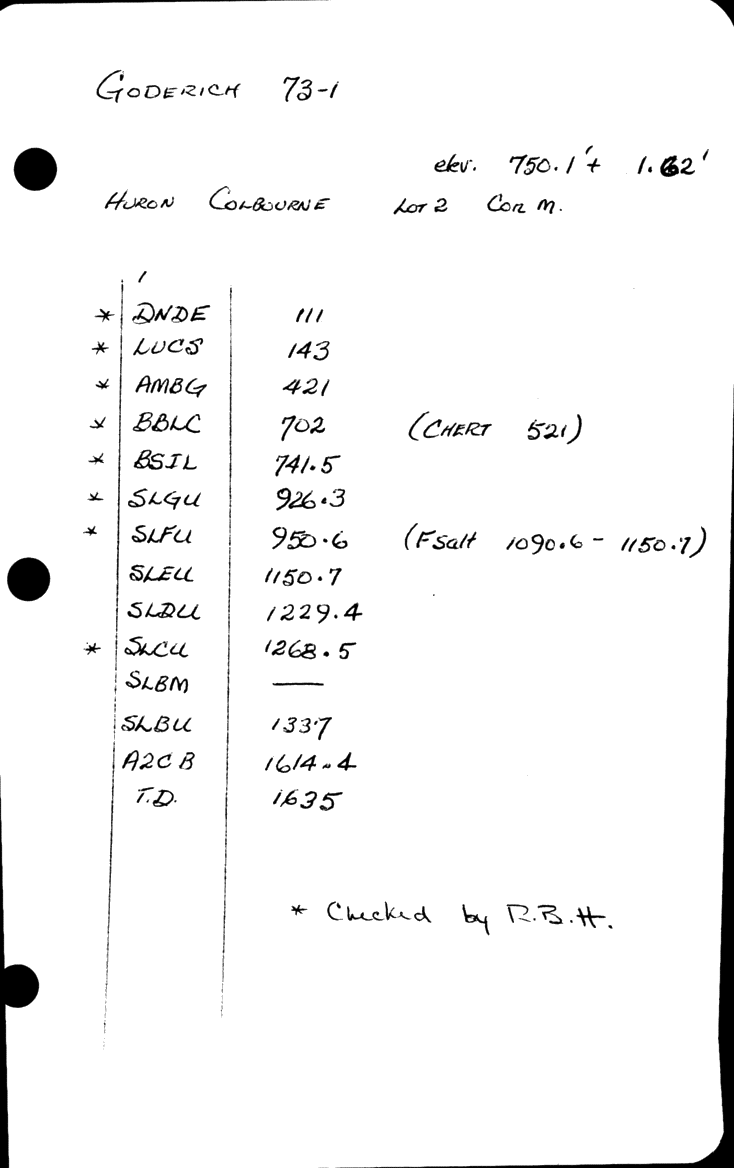 GODERICH 73-1
elev. 750.1'+ 1.62'
HURON COLBOURNE LOT 2 CON M.
* DNDE 111
* LUCS 143
* AMBG 421
* BBLC 702 (CHERT 521)
* BSIL 741.5
* SLGU 926.3
* SLFU 950.6 (F salt 1090.6 - 1150.7)
SLEU 1150.7
SLDU 1229.4
* SLCU 1268.5
SLBM —
SLBU 1337
A2CB 1614.4
T.D. 1635
* Checked by R.B.H.